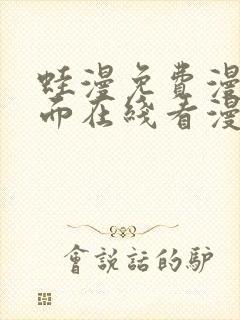 蛙漫免費漫
而在綫看漫
會說話的驴